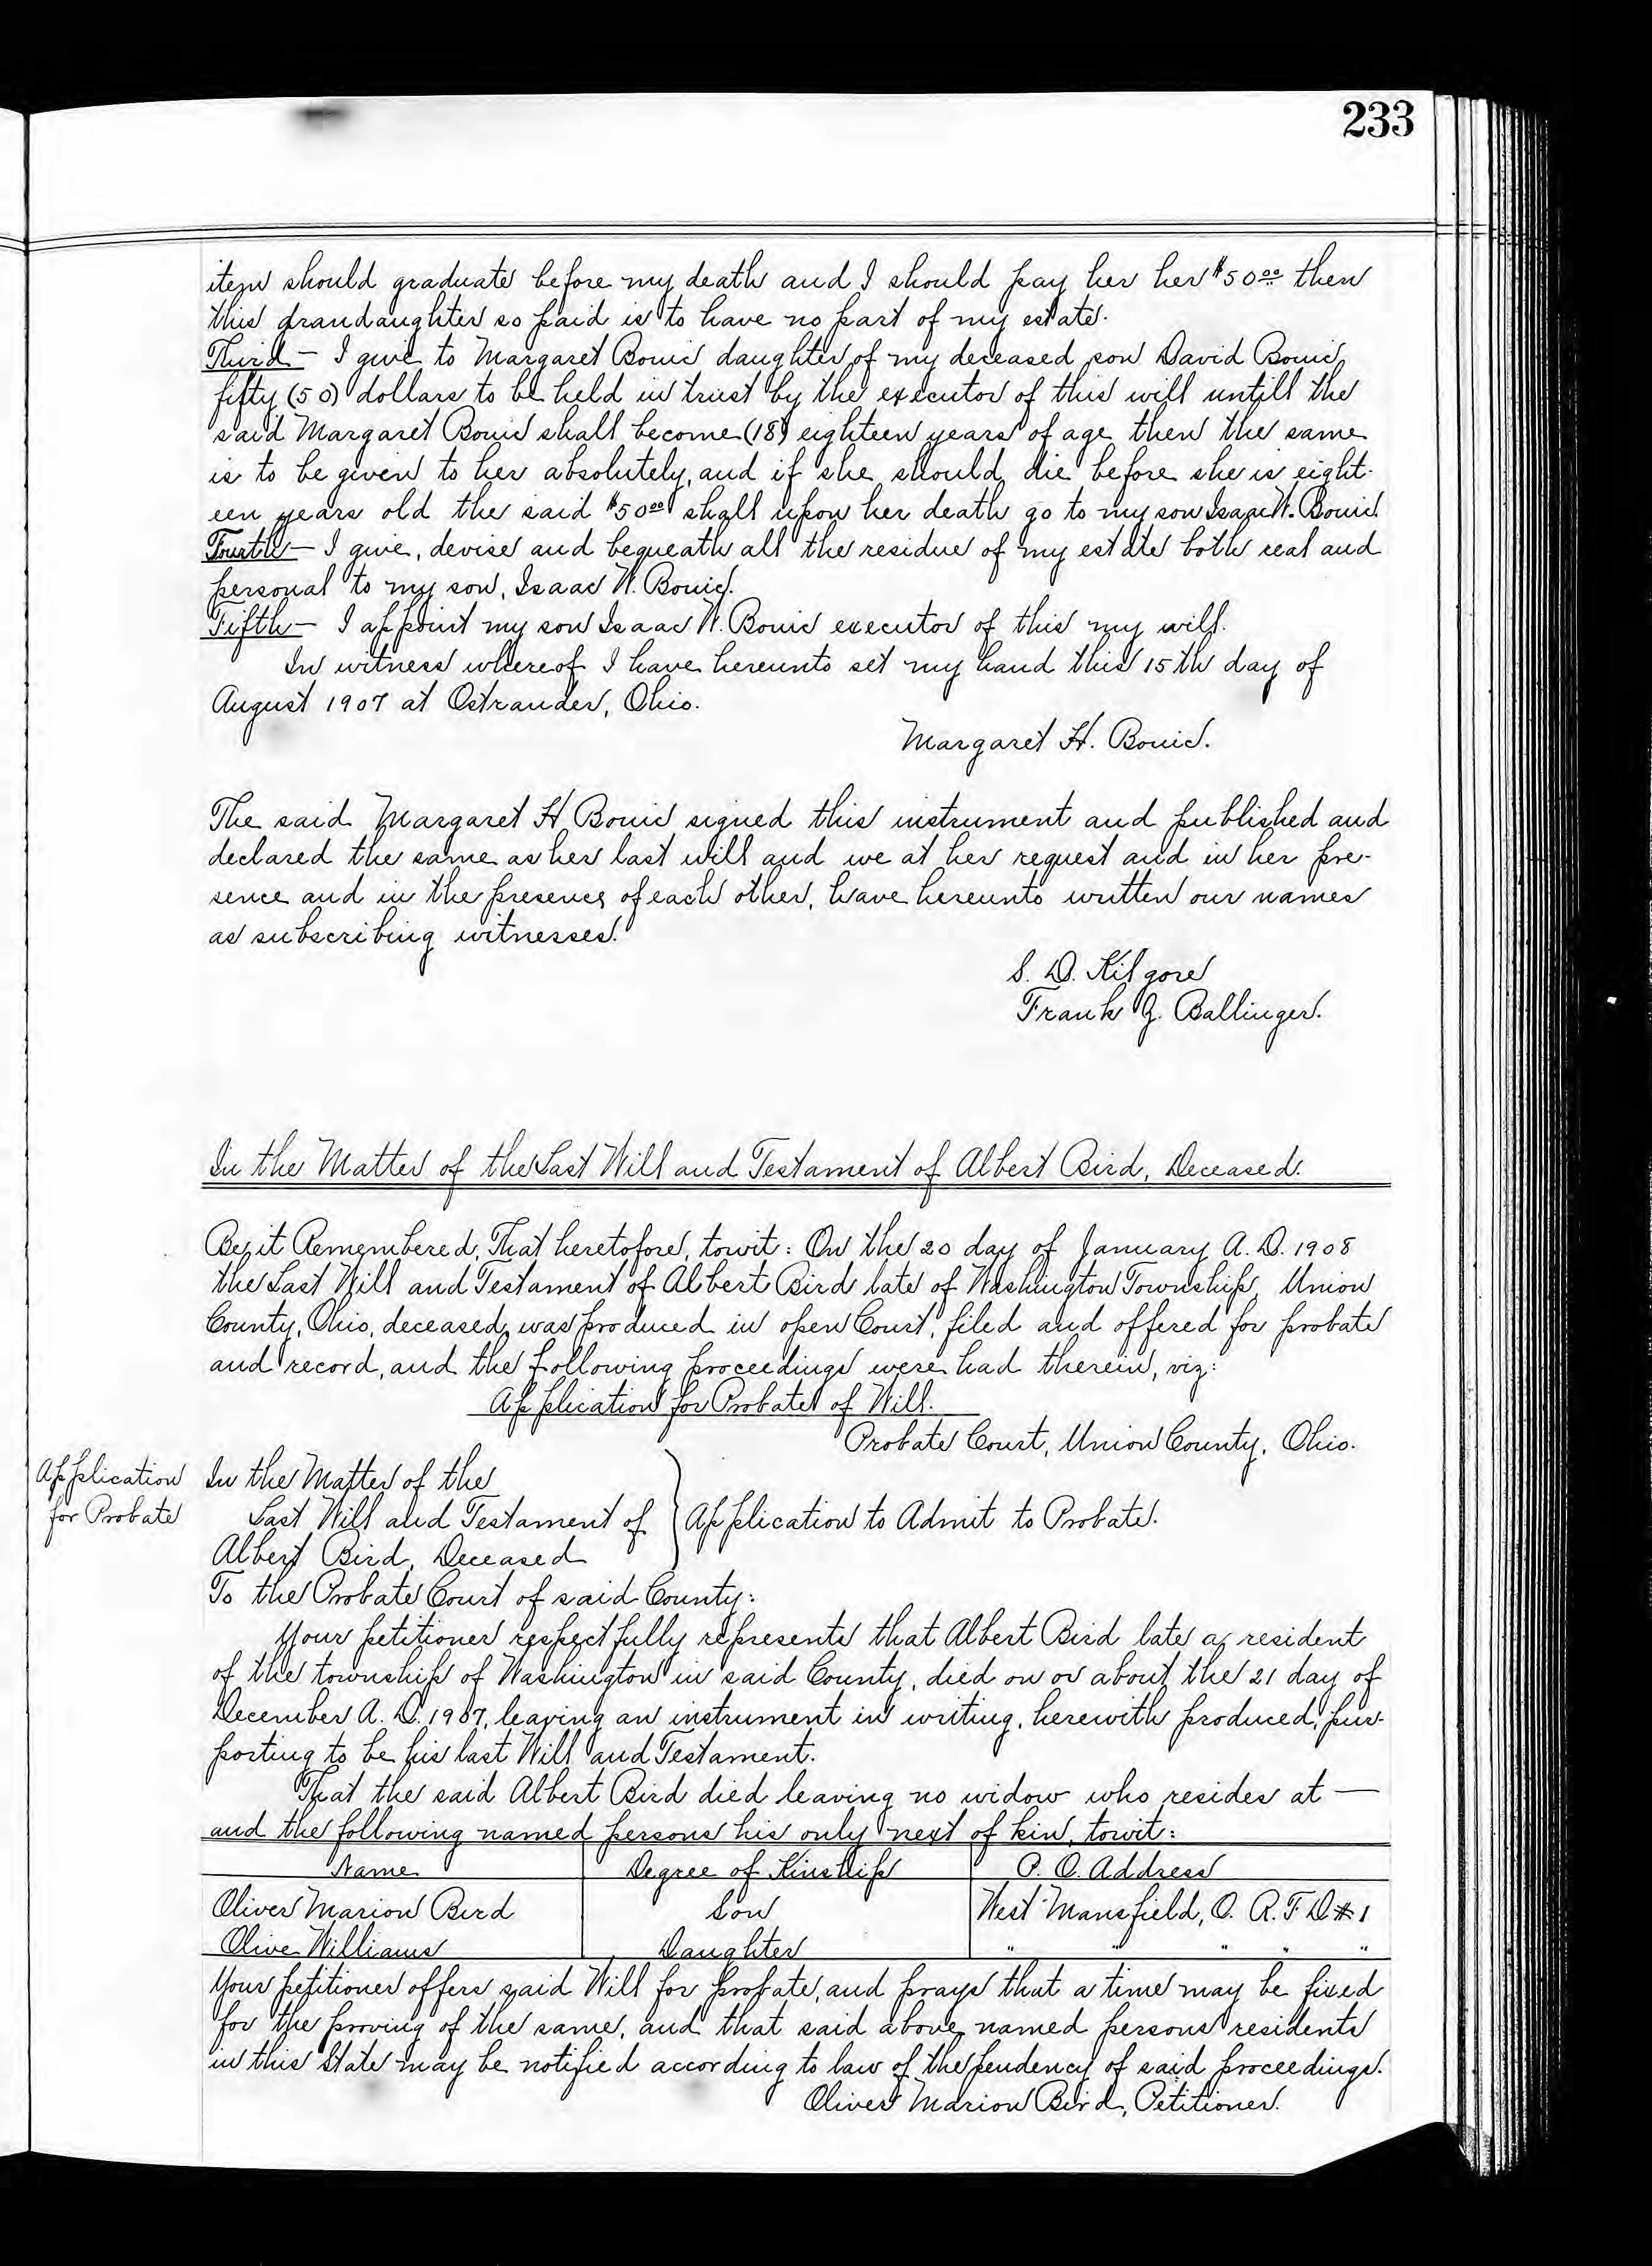 233
item should graduate before my death and I should pay her her $50.00 then
this grandaughter so paid is to have no part of my estate.
Third - I give to Margaret Bouic daughter of my deceased son David Bouic
fifty (50) dollars to be held in trust by the executor of this will untill the
said Margaret Bouic shall become (18) eighteen years of age then the same
is to be given to her absolutely, and if she should die before she is eight-
een years old the said $50.00 shall upon her death go to my son Isaac W. Bouic
Fourth - I give, devise and bequeath all the residue of my estate both real and
personal to my son, Isaac W. Bouic.
Fifth - I appoint my son Isaac W. Bouic executor of this my will.
In witness whereof I have hereunto set my hand this 15th day of
August 1907 at Ostrander, Ohio.
Margaret H. Bouic.
The said Margaret H Bouic signed this instrument and published and
declared the same as her last will and we at her request and in her pre-
sence and in the presence of each other, have hereunto written our names
as subscribing witnesses.
S. D. Kilgore
Frank J. Ballinger.
In the Matter of the Last Will and Testament of Albert Bird, Deceased.
Be it Remembered, That heretofore, towit: On the 20 day of January A. D. 1908
the Last Will and Testament of Albert Bird late of Washington Township, Union
County, Ohio, deceased, was produced in open Court, filed and offered for probate
and record, and the following proceedings were had therein, viz:
Application for Probate of Will.
Probate Court, Union County, Ohio.
Application
for Probate
In the Matter of the
Last Will and Testament of } Application to Admit to Probate.
Albert Bird, Deceased
To the Probate Court of said County:
Your petitioner respectfully represents that Albert Bird late a resident
of the township of Washington in said County, died on or about the 21 day of
December A. D. 1907, leaving an instrument in writing, herewith produced, pur-
porting to be his last Will and Testament.
That the said Albert Bird died leaving no widow who resides at —
and the following named persons his only next of kin, towit:
Name Degree of Kinship P. O. Address
Oliver Marion Bird Son West Mansfield, O. R. F. D # 1
Olive Williams Daughter " " " " "
Your petitioner offers said Will for probate, and prays that a time may be fixed
for the proving of the same, and that said above named persons residents
in this State may be notified according to law of the pendency of said proceedings.
Oliver Marion Bird, Petitioner.